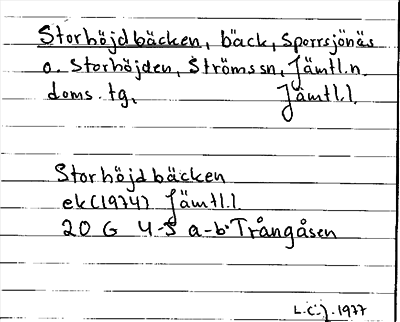 Storhöjdbäcken, bäck, Sporrsjönäs
o. Storhöjden, Ströms sn, Jämtl.n.
doms. tg, Jämtl.l.
Storhöjdbäcken
ek (1974) Jämtl.l.
20 G 4-5 a-b Trångåsen
L.C.J. 1977